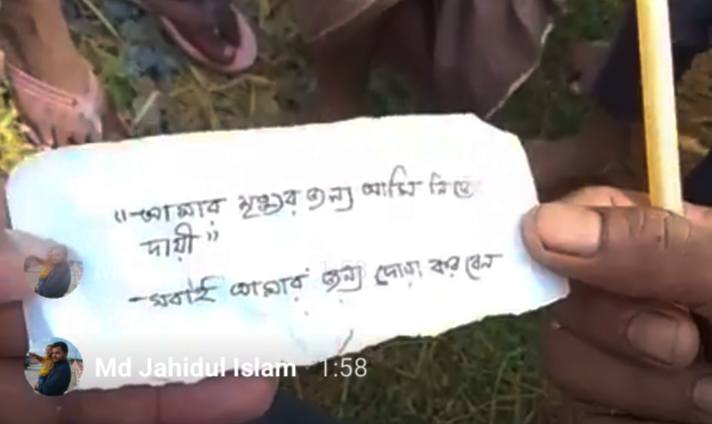 "আমার মৃত্যুর জন্য আমি নিজে
দায়ী"
-সবাই আমার জন্য দোয়া করবেন
Md Jahidul Islam · 1:58